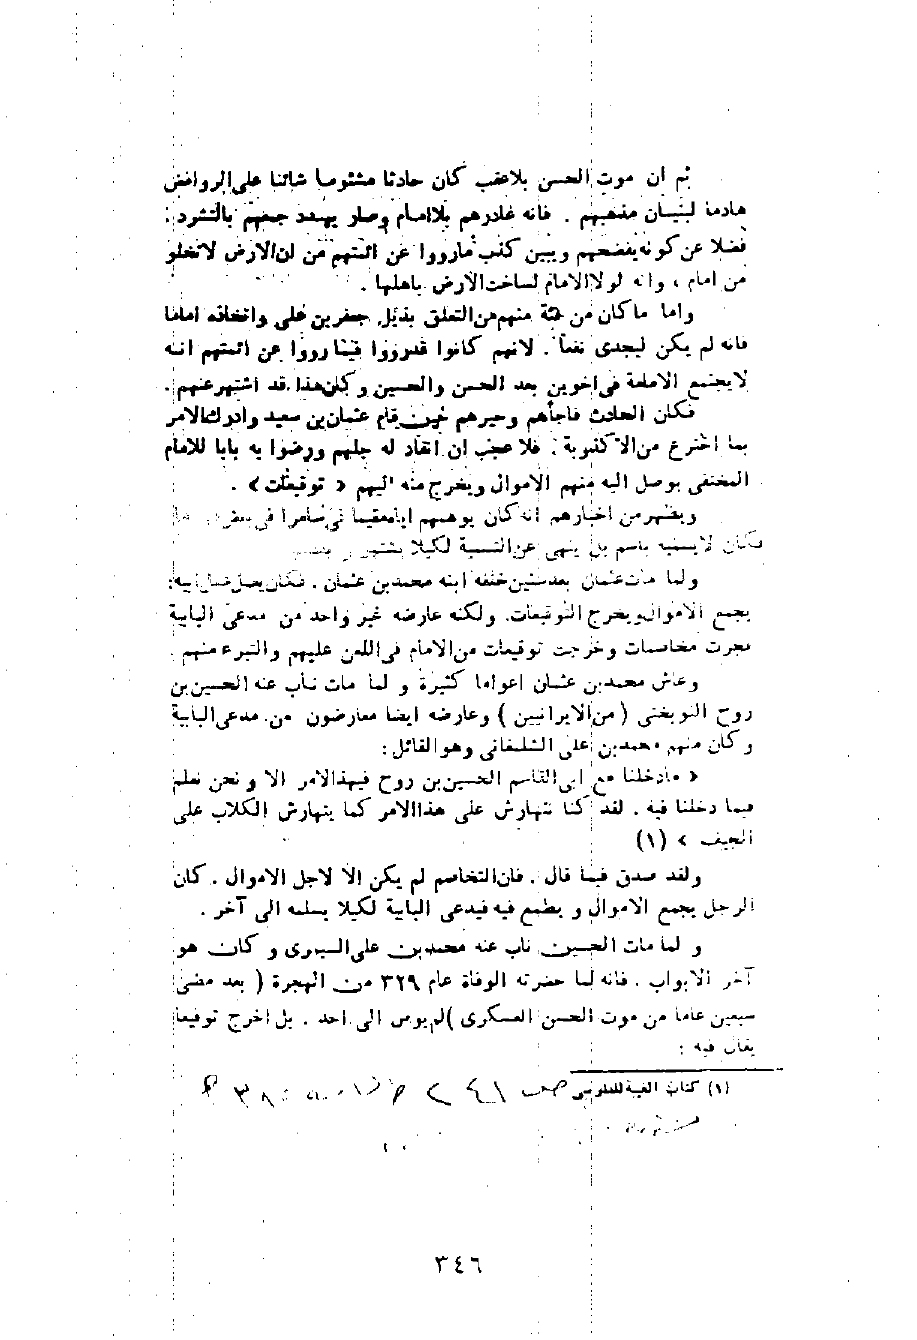 ثم ان موت الحسن بلاعقب كان حادثا مشئوما شائنا على الروافض
هادما لبنيان مذهبهم . فانه غادرهم بلاامام وصار يهدد جمعهم بالتشرد .
فضلا عن كونه يفضحهم ويبين كذب مارووا عن ائمتهم من ان الارض لاتخلو
من امام ، وانه لولا الامام لساخت الارض باهلها .
واما ماكان من فئة منهم من التعلق بذيل جعفر بن على واتخاذه اماما
فانه لم يكن ليجدى نفعاً . لانهم كانوا قدرووا فيما رووا عن ائمتهم انه
لايجتمع الامامة فى اخوين بعد الحسن والحسين وكان هذا قد اشتهر عنهم .
فكان الحادث فاجأهم وحيرهم حين قام عثمان بن سعيد وادرك الامر
بما اخترع من الاكذوبة . فلا عجب ان انقاد له جلهم ورضوا به بابا للامام
المختفى يوصل اليه منهم الاموال ويخرج منه اليهم « توقيعات » .
ويظهر من اخبارهم انه كان يوهمهم ابامقيما فى سامرا فى
فكان لايسميه باسم بل ينهى عن التسمية لكيلا يشتهر
ولما مات عثمان بعد سنين خلفه ابنه محمد بن عثمان . فكان يعمل عمل ابيه
يجمع الاموال ويخرج التوقيعات . ولكنه عارضه غير واحد من مدعى البابية
فجرت مخاصمات وخرجت توقيعات من الامام فى اللعن عليهم والتبرء منهم .
وعاش محمد بن عثمان اعواما كثيرة و لما مات ناب عنه الحسين بن
روح النوبختى ( من الايرانيين ) وعارضه ايضا معارضون من مدعى البابية
وكان منهم محمد بن على الشلمغانى وهو القائل :
« مادخلنا مع ابى القاسم الحسين بن روح فيهذا الامر الا و نحن نعلم
فيما دخلنا فيه . لقد كنا نتهارش على هذا الامر كما يتهارش الكلاب على
الجيف » (١)
ولقد صدق فيما قال . فان التخاصم لم يكن الا لاجل الاموال . كان
الرجل يجمع الاموال و يطمع فيه فيدعى البابية لكيلا يسلمه الى آخر .
و لما مات الحسين ناب عنه محمد بن على السيمرى و كان هو
آخر الابواب . فانه لما حضرته الوفاة عام ٣٢٩ من الهجرة ( بعد مضى
سبعين عاما من موت الحسن العسكرى ) لم يوص الى احد . بل اخرج توقيعا
يقال فيه :
(١) كتاب الغيبة للطوسى ص ٢٤١
٣٤٦